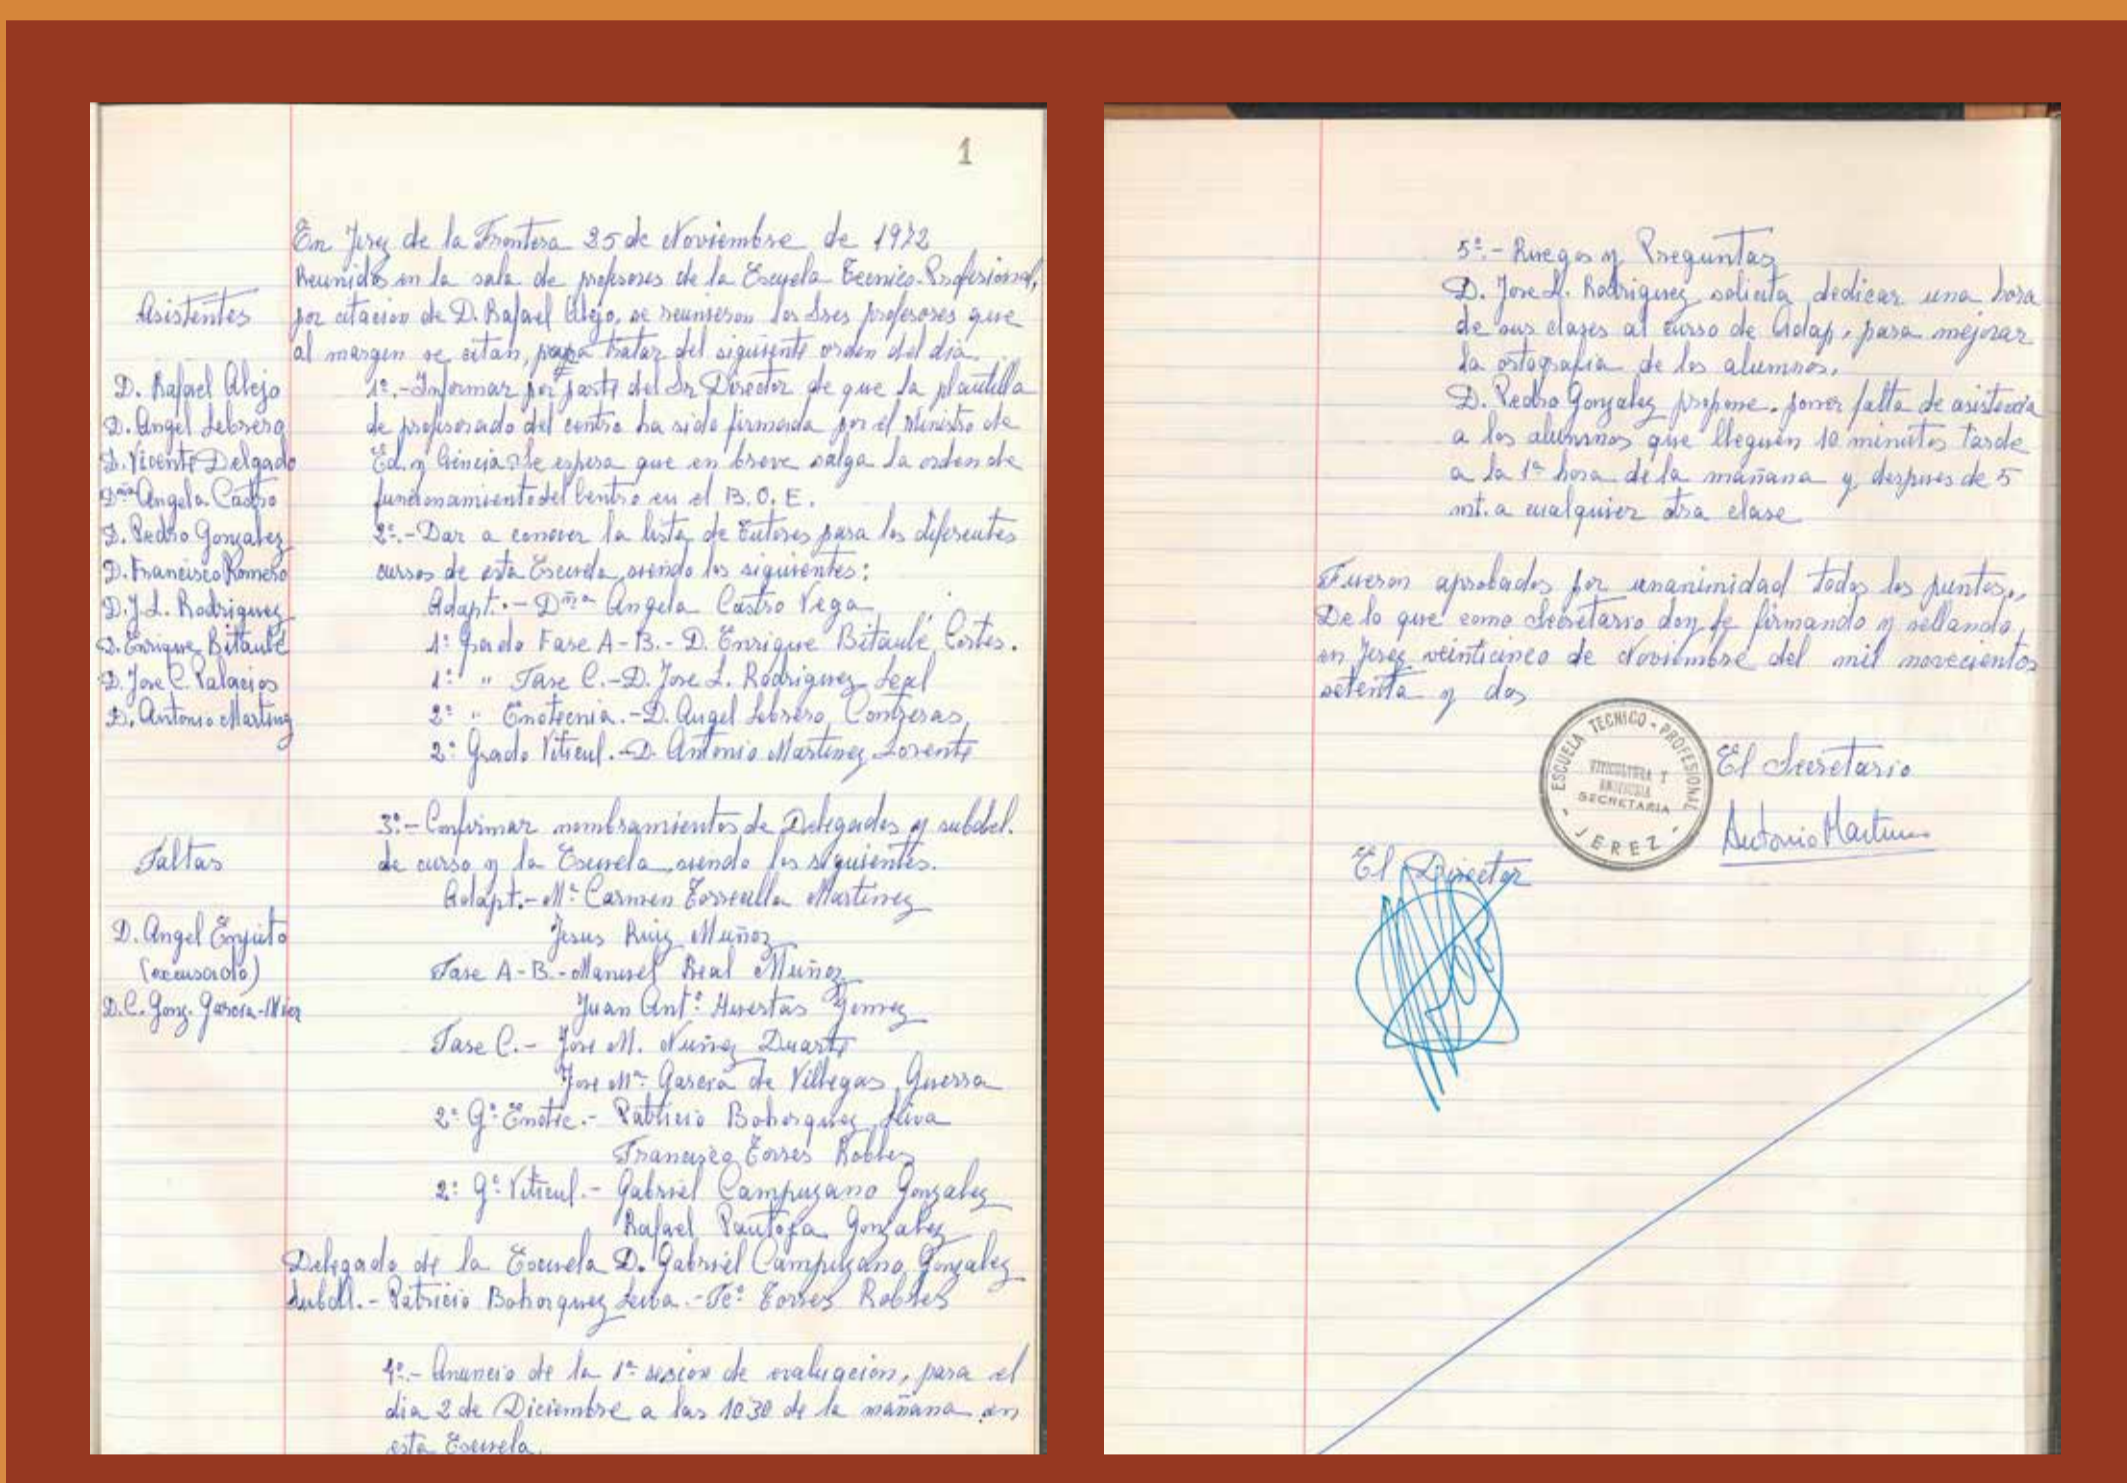 1
En Jerez de la Frontera 25 de Noviembre de 1972
Reunidos en la sala de profesores de la Escuela Tecnico-Profesional,
por citacion de D. Rafael Alejo, se reunieron los Sres profesores que
al margen se citan, para tratar del siguiente orden del dia.
Asistentes
D. Rafael Alejo
D. Angel Lebrero
D. Vicente Delgado
Dña Angela Castro
D. Pedro Gonzalez
D. Francisco Romero
D. J. L. Rodriguez
D. Enrique Bitaubé
D. Jose C. Palacios
D. Antonio Martinez
1º.- Informar por parte del Sr Director de que la plantilla
de profesorado del centro ha sido firmada por el Ministro de
Ed. y Ciencia. Se espera que en breve salga la orden de
funcionamiento del Centro en el B.O.E.
2º.- Dar a conocer la lista de Tutores para los diferentes
cursos de esta Escuela, siendo los siguientes:
Adapt.- Dña Angela Castro Vega
1º Grado Fase A-B.- D. Enrique Bitaubé Cortes.
1º " Fase C.- D. Jose L. Rodriguez Leal
2º " Enotecnia.- D. Angel Lebrero Contreras,
2º Grado Viticul.- D. Antonio Martinez Lorente
3º.- Confirmar nombramientos de Delegados y subdel.
de curso y la Escuela, siendo los siguientes.
Adapt.- Mª Carmen Torrecilla Martinez
Jesus Ruiz Muñoz
Fase A-B.- Manuel Real Muñoz
Juan Antº Huertas Gomez
Fase C.- Jose M. Nuñez Duarte
Jose Mª Garcia de Villegas Guerra
2º Gº Enotec.- Patricio Bohorquez Leiva
Francisco Torres Robles
2º Gº Viticul.- Gabriel Campuzano Gonzalez
Rafael Pantoja Gonzalez
Delegado de la Escuela D. Gabriel Campuzano Gonzalez
Subdl.- Patricio Bohorquez Leiva.- Fcº Torres Robles
Faltas
D. Angel
(excusado)
D. C. Gonz. Garcia-Mier
4º.- Anuncio de la 1ª sesión de evaluación, para el
dia 2 de Diciembre a las 10'30 de la mañana en
esta Escuela.
5º.- Ruegos y Preguntas
D. Jose L. Rodriguez solicita dedicar una hora
de sus clases al curso de Adap, para mejorar
la ortografia de los alumnos.
D. Pedro Gonzalez propone, poner falta de asistencia
a los alumnos que lleguen 10 minutos tarde
a la 1ª hora de la mañana y despues de 5
mt. a cualquier otra clase
Fueron aprobados por unanimidad todos los puntos,
De lo que como Secretario doy fe firmando y sellando,
en Jerez veinticinco de Noviembre del mil novecientos
setenta y dos
ESCUELA TECNICO-PROFESIONAL
VITICULTURA Y
ENOTECNIA
SECRETARIA
- JEREZ -
El Secretario
Antonio Martinez
El Director